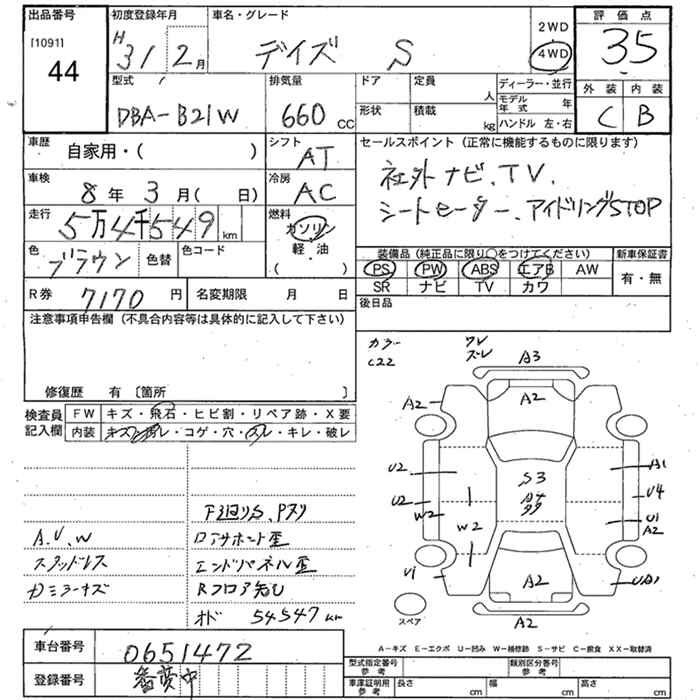 出品番号
[1091]
44
初度登録年月
H 31 2月
車名・グレード
デイズ S
2WD
4WD
評価点
3.5
外装 内装
C B
型式
DBA-B21W
排気量
660 CC
ドア
定員
人
形状
積載
kg
ディーラー・並行
モデル年式 年
ハンドル 左・右
車歴
自家用・( )
シフト
AT
セールスポイント(正常に機能するものに限ります)
社外ナビ、TV、
シートヒーター、アイドリングSTOP
車検
8年 3月( 日)
冷房
AC
走行
5万4千549 km
燃料
ガソリン
軽・油
( )
色
ブラウン
色替
色コード
装備品(純正品に限り○をつけてください)
新車保証書
PS PW ABS エアB AW
SR ナビ TV カワ
有・無
R券
7170 円
名変期限 月 日
後日品
注意事項申告欄(不具合内容等は具体的に記入して下さい)
修復歴 有〔箇所 〕
検査員記入欄
FW キズ・飛石・ヒビ割・リペア跡・X要
内装 キズ・汚レ・コゲ・穴・スレ・キレ・破レ
カラー
C22
ワレ
ズレ
A3
A2
A2
U2
A1
S3
U2
W2
W2
U4
U1
A2
U1
A2
UA1
A2
スペア
下廻りS、Pヌリ
A.U.W
ロアサポート歪
スタッドレス
エンドパネル歪
Rフロア
オド 54547km
車台番号
0651472
登録番号
番変中
A-キズ E-エクボ U-凹み W-補修跡 S-サビ C-腐食 XX-取替済
型式指定番号
参考
類別区分番号
参考
車庫証明用
参考
長さ cm
幅 cm
高さ cm